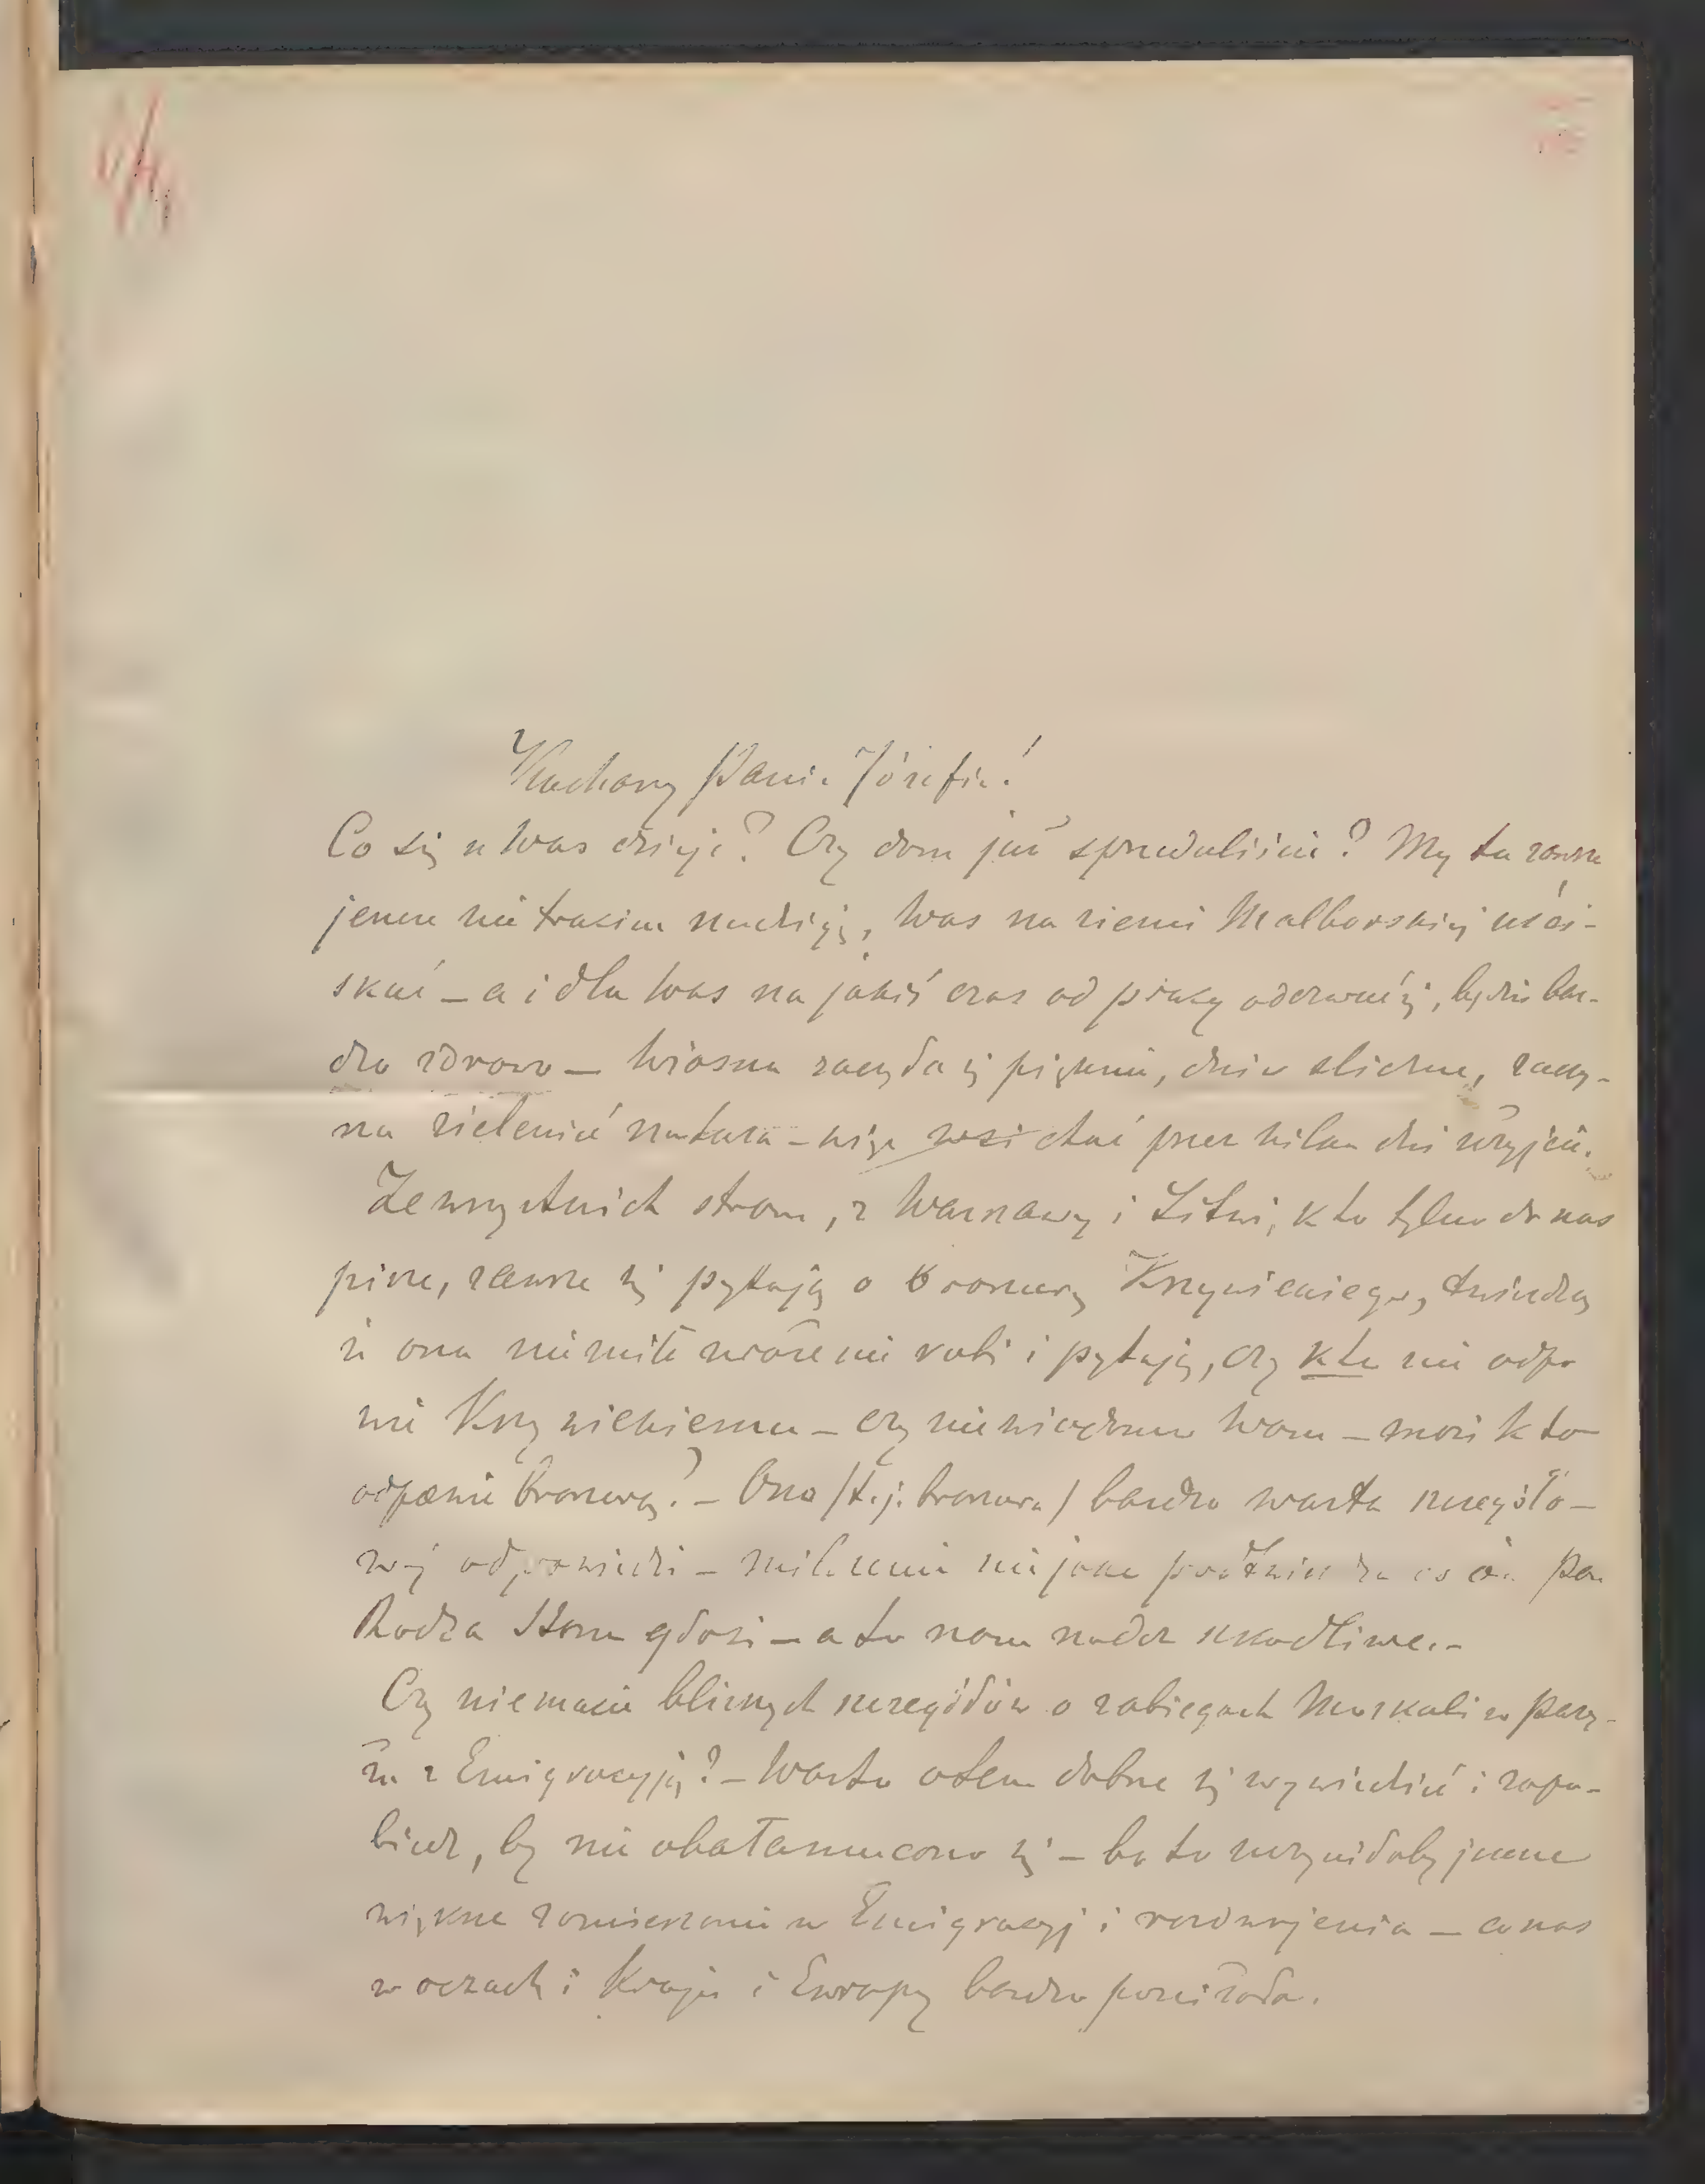 Kochany Panie Józefie!
Co się u Was dzieje? Czy dom już sprzedaliście? My tu zawsze
jeszcze nie tracim nadzieję, Was na ziemi Malborskiej uści-
skać – a i dla Was na jakiś czas od pracy oderwać się, będzie bar-
dzo zdrowo – Wiosna zaczęła się pięknie, dnie śliczne, zaczy-
na zielenić natura – więc choć przez kilka dni użyjcie.
Ze wszystkich stron, z Warszawy i Litwi, kto tylko do nas
pisze, zawsze się pytają o broszurę Krzywickiego, twierdzą
iż ona niemiłe wrażenie robi i pytają, czy kto nie odpo
wie Krzywickiemu – czy niewiadomo Wam – może kto
odpowie broszurą? – Ona /t.j. broszura/ bardzo warta szczegóło-
wej odpowiedzi – milczenie niejako
nam nader szkodliwe. –
Czy niemacie bliższych szczegółów o zabiegach Moskali w Pary-
żu z Emigracyją? – Warto o tem dobrze się wywiedzieć i zapo-
biedz, by nie obałamucono się – bo to uczyniłoby jeszcze
większe zamieszanie w Emigracyj i rozdwojenia – co nas
w oczach i Kraju i Europy bardzo poniżało.